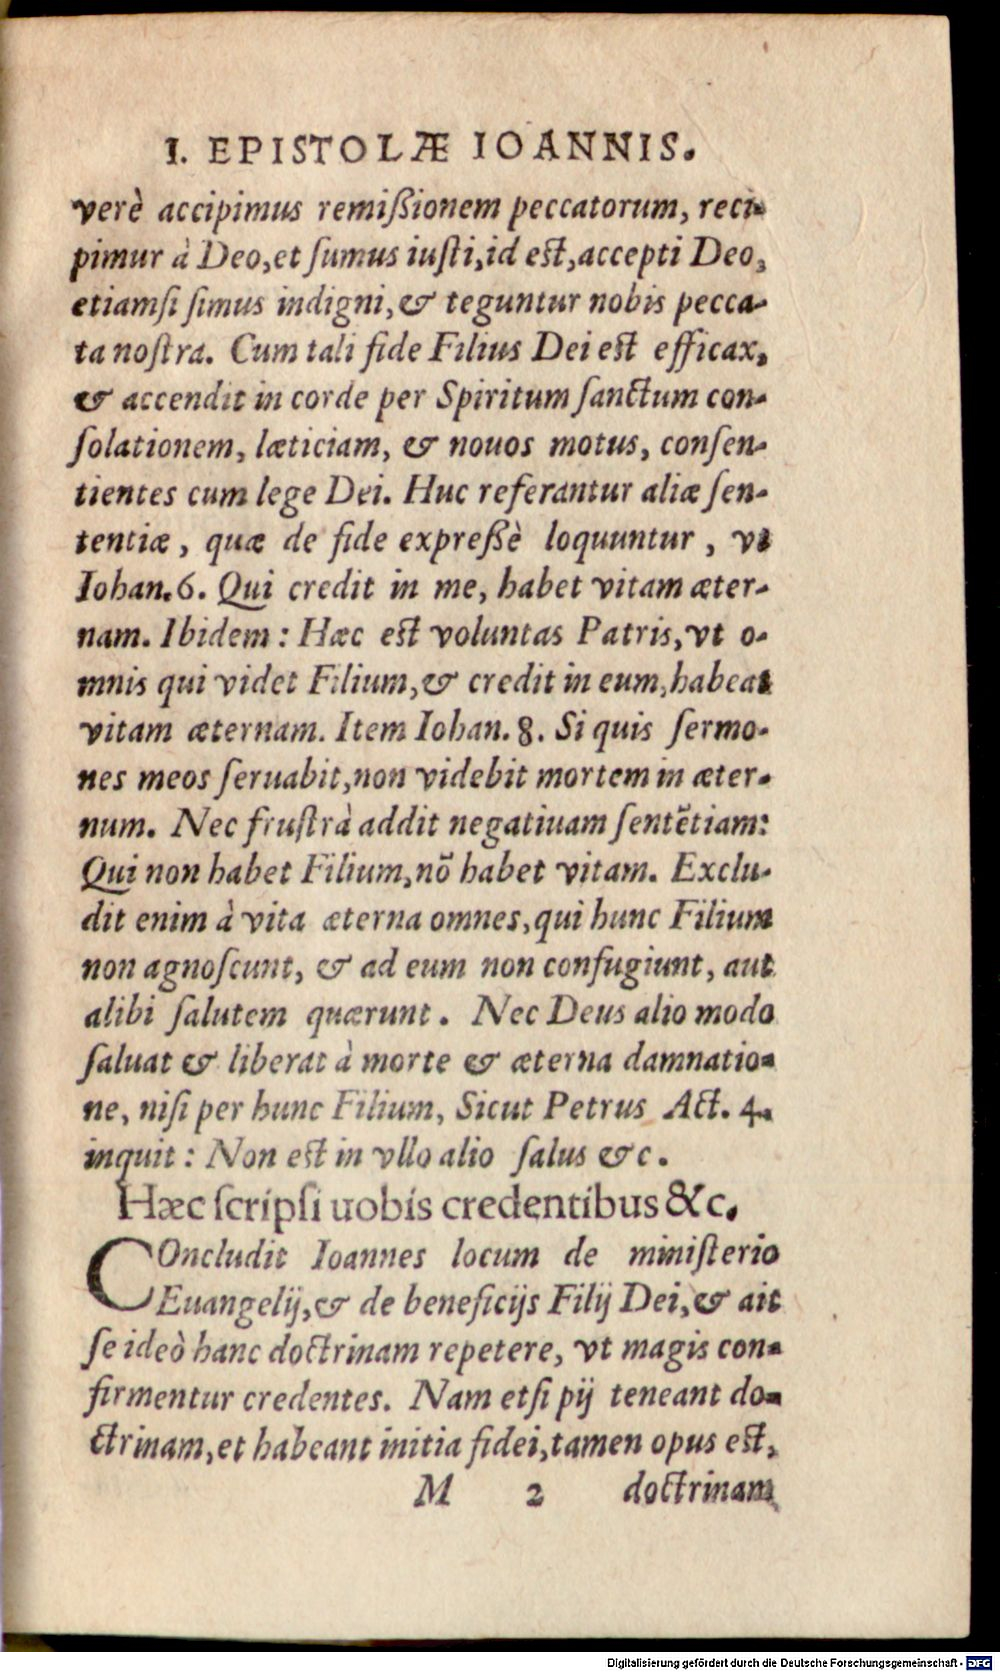 I. EPISTOLÆ IOANNIS.
verè accipimus remißionem peccatorum, reci-
pimur à Deo, et ſumus iuſti, id eſt, accepti Deo,
etiamſi ſimus indigni, & teguntur nobis pecca-
ta noſtra. Cum tali fide Filius Dei eſt efficax,
& accendit in corde per Spiritum ſanctum con-
ſolationem, læticiam, & nouos motus, conſen-
tientes cum lege Dei. Huc referantur aliæ ſen-
tentiæ, quæ de fide expreßè loquuntur, vt
Iohan. 6. Qui credit in me, habet vitam æter-
nam. Ibidem: Hæc eſt voluntas Patris, vt o-
mnis qui videt Filium, & credit in eum, habeat
vitam æternam. Item Iohan. 8. Si quis ſermo-
nes meos ſeruabit, non videbit mortem in æter-
num. Nec fruſtrà addit negatiuam ſentẽtiam:
Qui non habet Filium, nõ habet vitam. Exclu-
dit enim à vita æterna omnes, qui hunc Filium
non agnoſcunt, & ad eum non confugiunt, aut
alibi ſalutem quærunt. Nec Deus alio modo
ſaluat & liberat à morte & æterna damnatio-
ne, niſi per hunc Filium, Sicut Petrus Act. 4.
inquit: Non eſt in vllo alio ſalus &c.
Hæc ſcripſi uobis credentibus &c.
COncludit Ioannes locum de miniſterio
Euangelij, & de beneficijs Filij Dei, & ait
ſe ideò hanc doctrinam repetere, vt magis con-
firmentur credentes. Nam etſi pij teneant do-
ctrinam, et habeant initia fidei, tamen opus eſt,
M 2 doctrinam
Digitalisierung gefördert durch die Deutsche Forschungsgemeinschaft - DFG